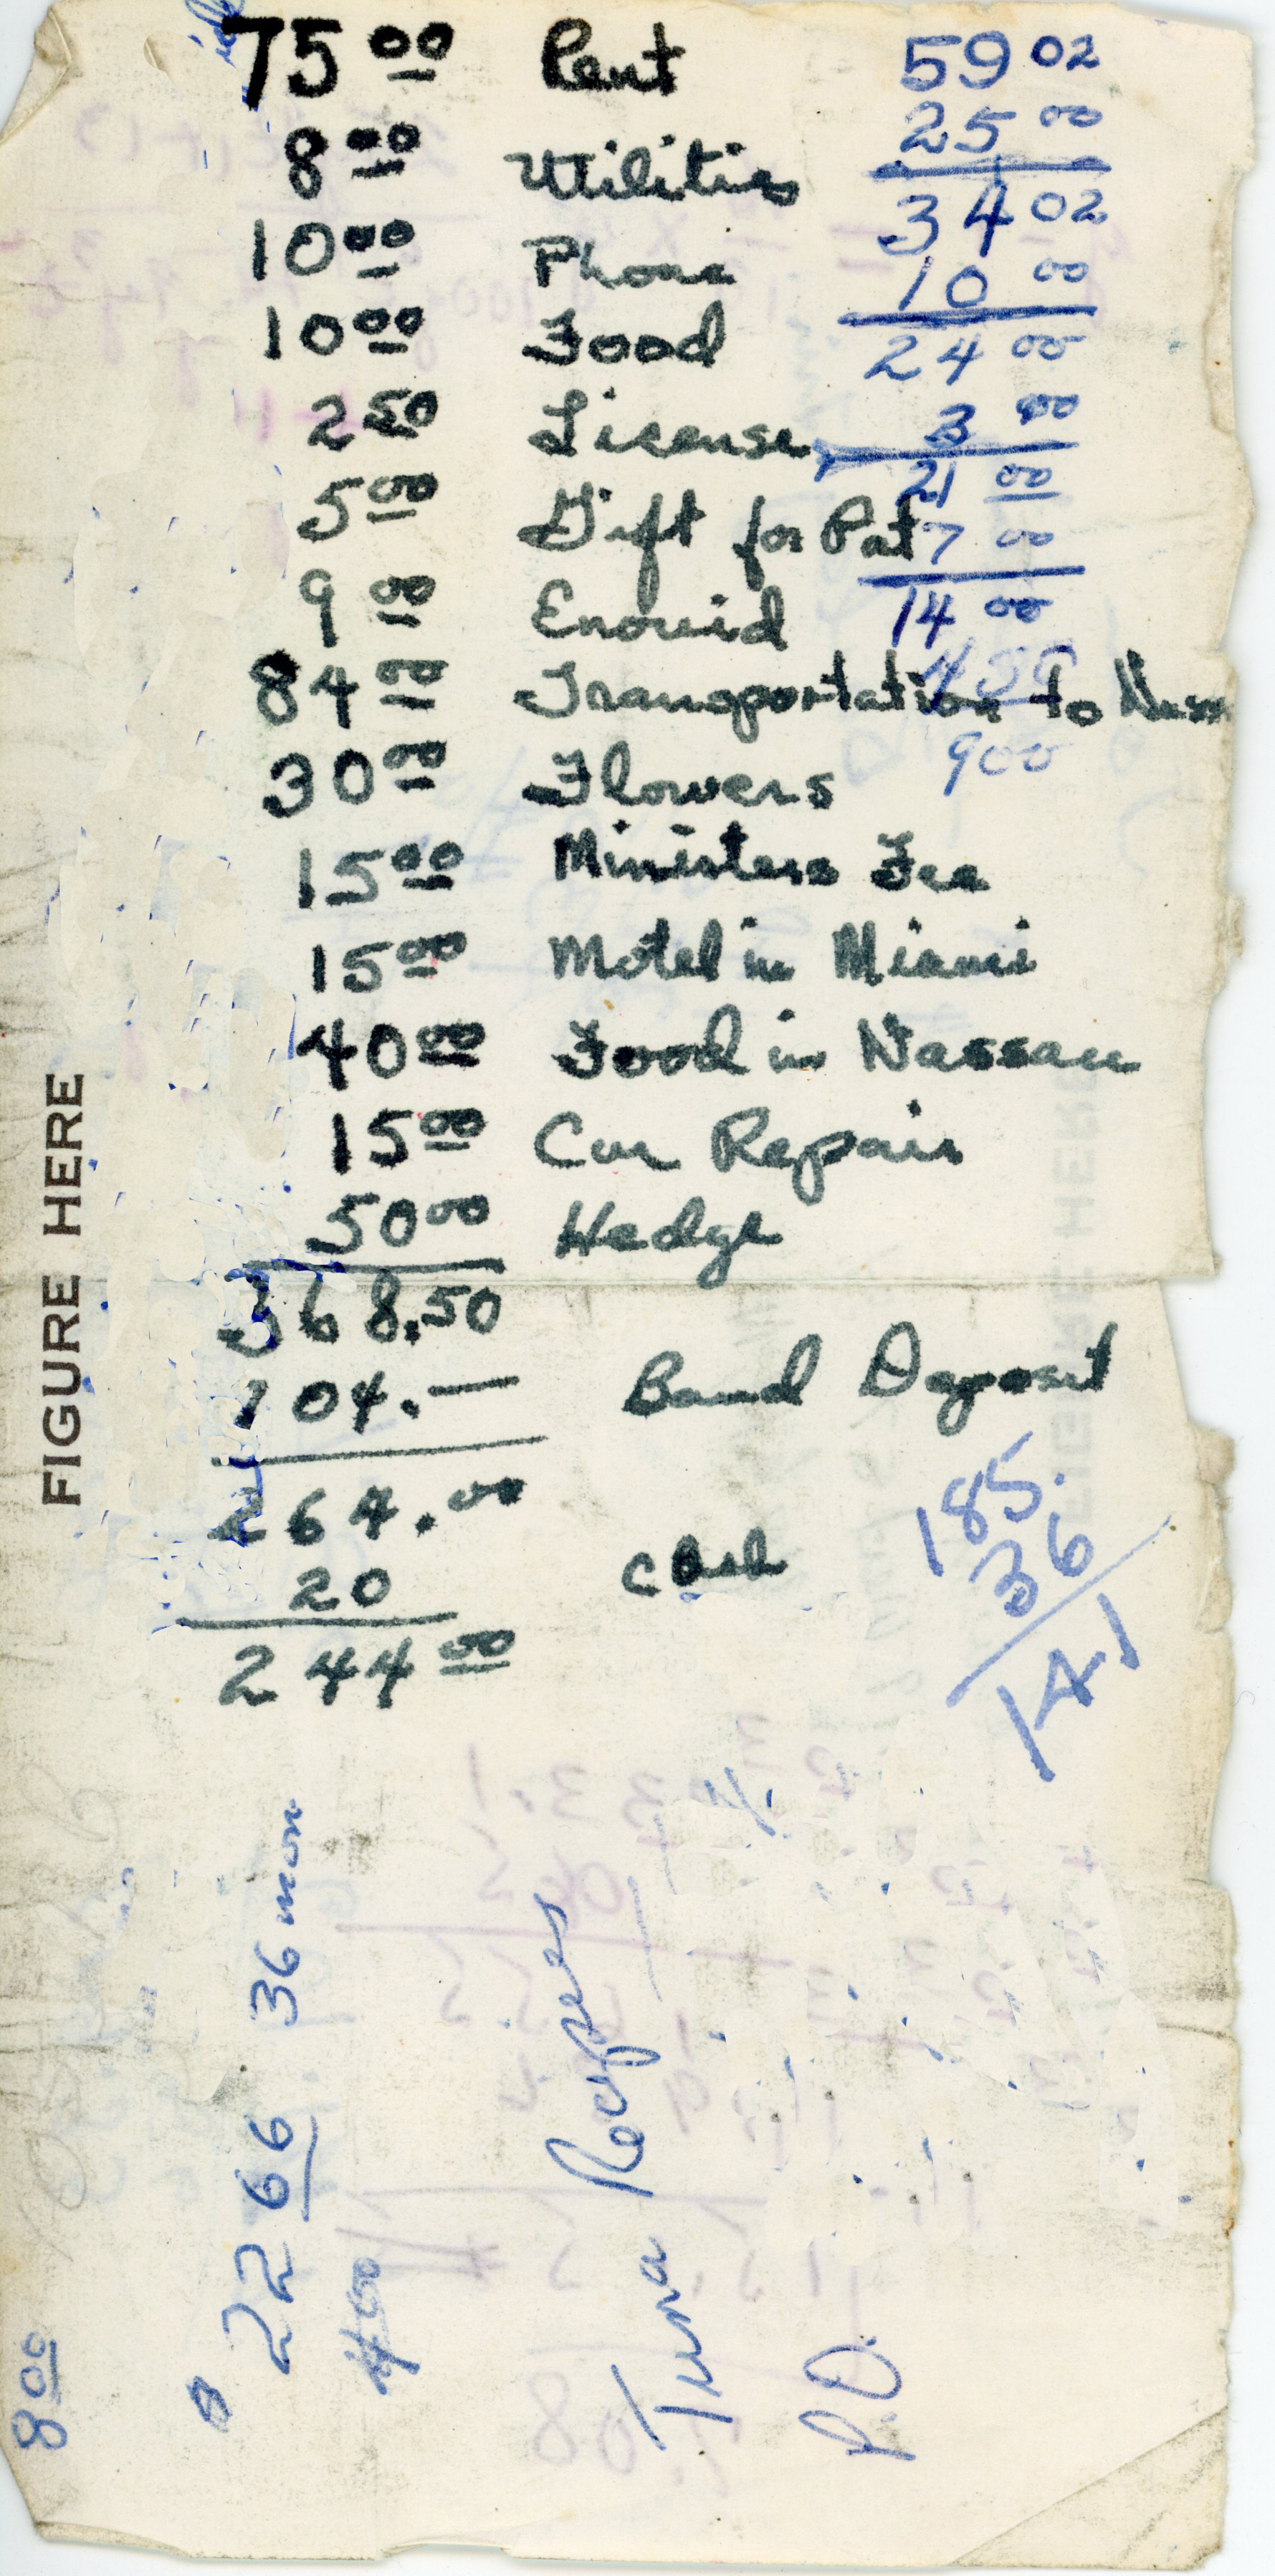 75 00 Rent
8 00 Utilities
10 00 Phone
10 00 Food
2 50 License
5 00 Gift for Pat
9 00 Enovid
84 00 Transportation to
30 00 Flowers
15 00 Ministers Fee
15 00 Motel in Miami
40 00 Food in Nassau
15 00 Car Repair
50 00 Hedge
368.50
104.— Band Deposit
264.00
20 cash
244 00
59 02
25 00
34 02
10 00
24 00
3 00
21 00
7 00
14 00
4 50
9 00
185.
36
141
FIGURE HERE
8 00
22 66 36 mon
4 00
Tuna Recipes
P.O.